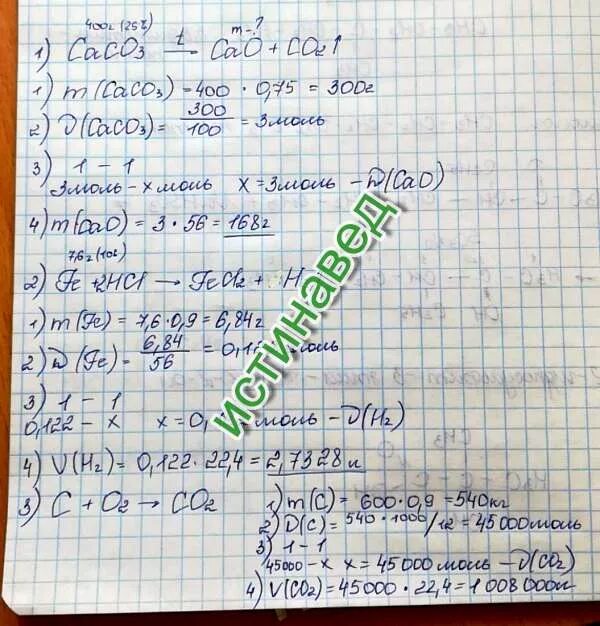 400г (25%) m-?
1) CaCO3 t CaO + CO2↑
1) m(CaCO3) = 400 · 0,75 = 300г
2) ν(CaCO3) = 300/100 = 3моль
3) 1 - 1
3моль - x моль x = 3моль - ν(CaO)
4) m(CaO) = 3 · 56 = 168г
7,6г (10%)
2) Fe + 2HCl → FeCl2 + H
1) m(Fe) = 7,6 · 0,9 = 6,84г
2) ν(Fe) = 6,84/56 = 0,1 моль
3) 1 - 1
0,122 - x x = 0, моль - ν(H2)
4) V(H2) = 0,122 · 22,4 = 2,7328 л
3) C + O2 → CO2
1) m(C) = 600 · 0,9 = 540кг
2) ν(C) = 540 · 1000/12 = 45000моль
3) 1 - 1
45000 - x x = 45000 моль - ν(CO2)
4) V(CO2) = 45000 · 22,4 = 1008000л
ИСТИНАВЕД